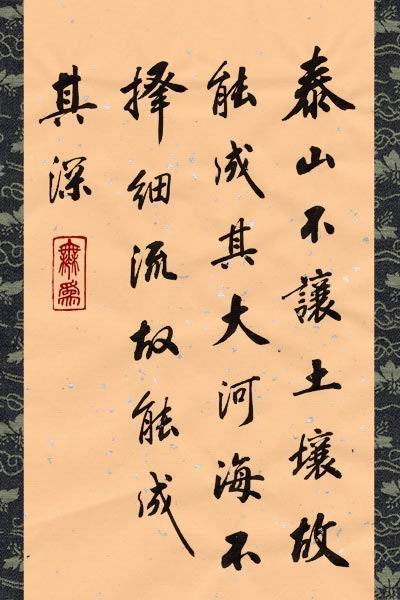 泰山不讓土壤故
能成其大河海不
擇細流故能成
其深
無為